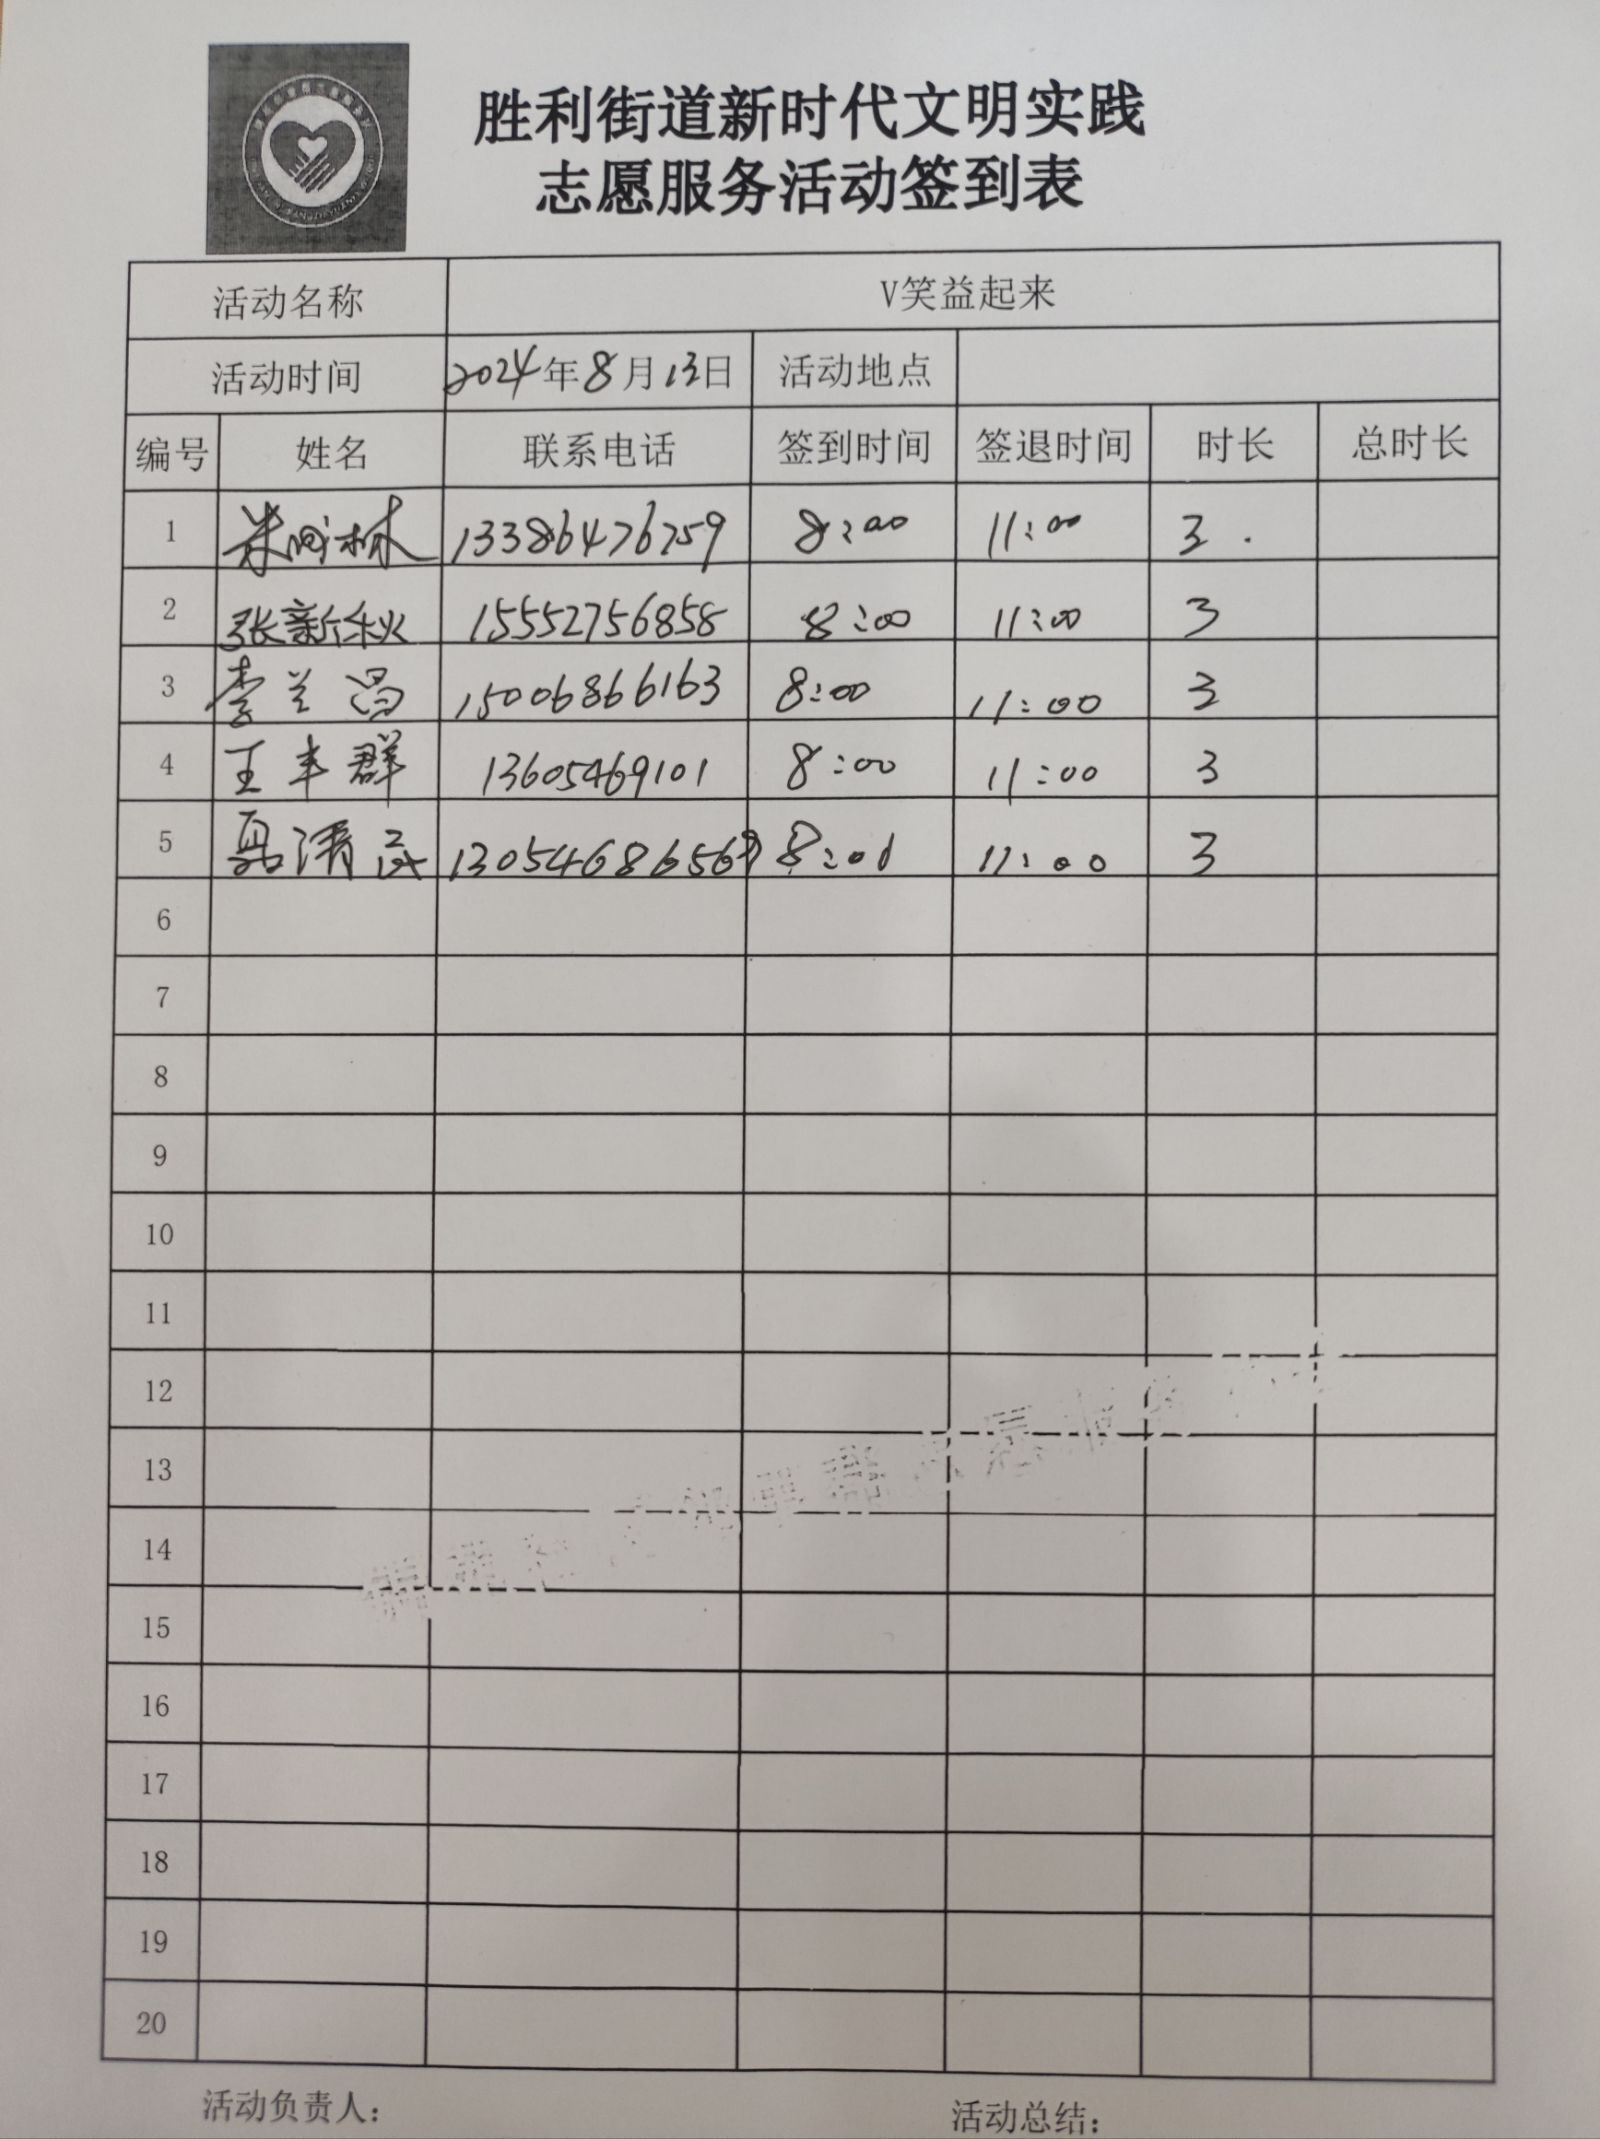 胜利街道新时代文明实践
志愿服务活动签到表
活动名称 V笑益起来
活动时间 2024年8月13日 活动地点
编号 姓名 联系电话 签到时间 签退时间 时长 总时长
1 13386476759 8:00 11:00 3.
2 张新秋 15552756858 8:00 11:00 3
3 李兰昌 15006866163 8:00 11:00 3
4 王丰群 13605469101 8:00 11:00 3
5 聂清民 8:00 11:00 3
6
7
8
9
10
11
12
13
14
15
16
17
18
19
20
活动负责人: 活动总结: